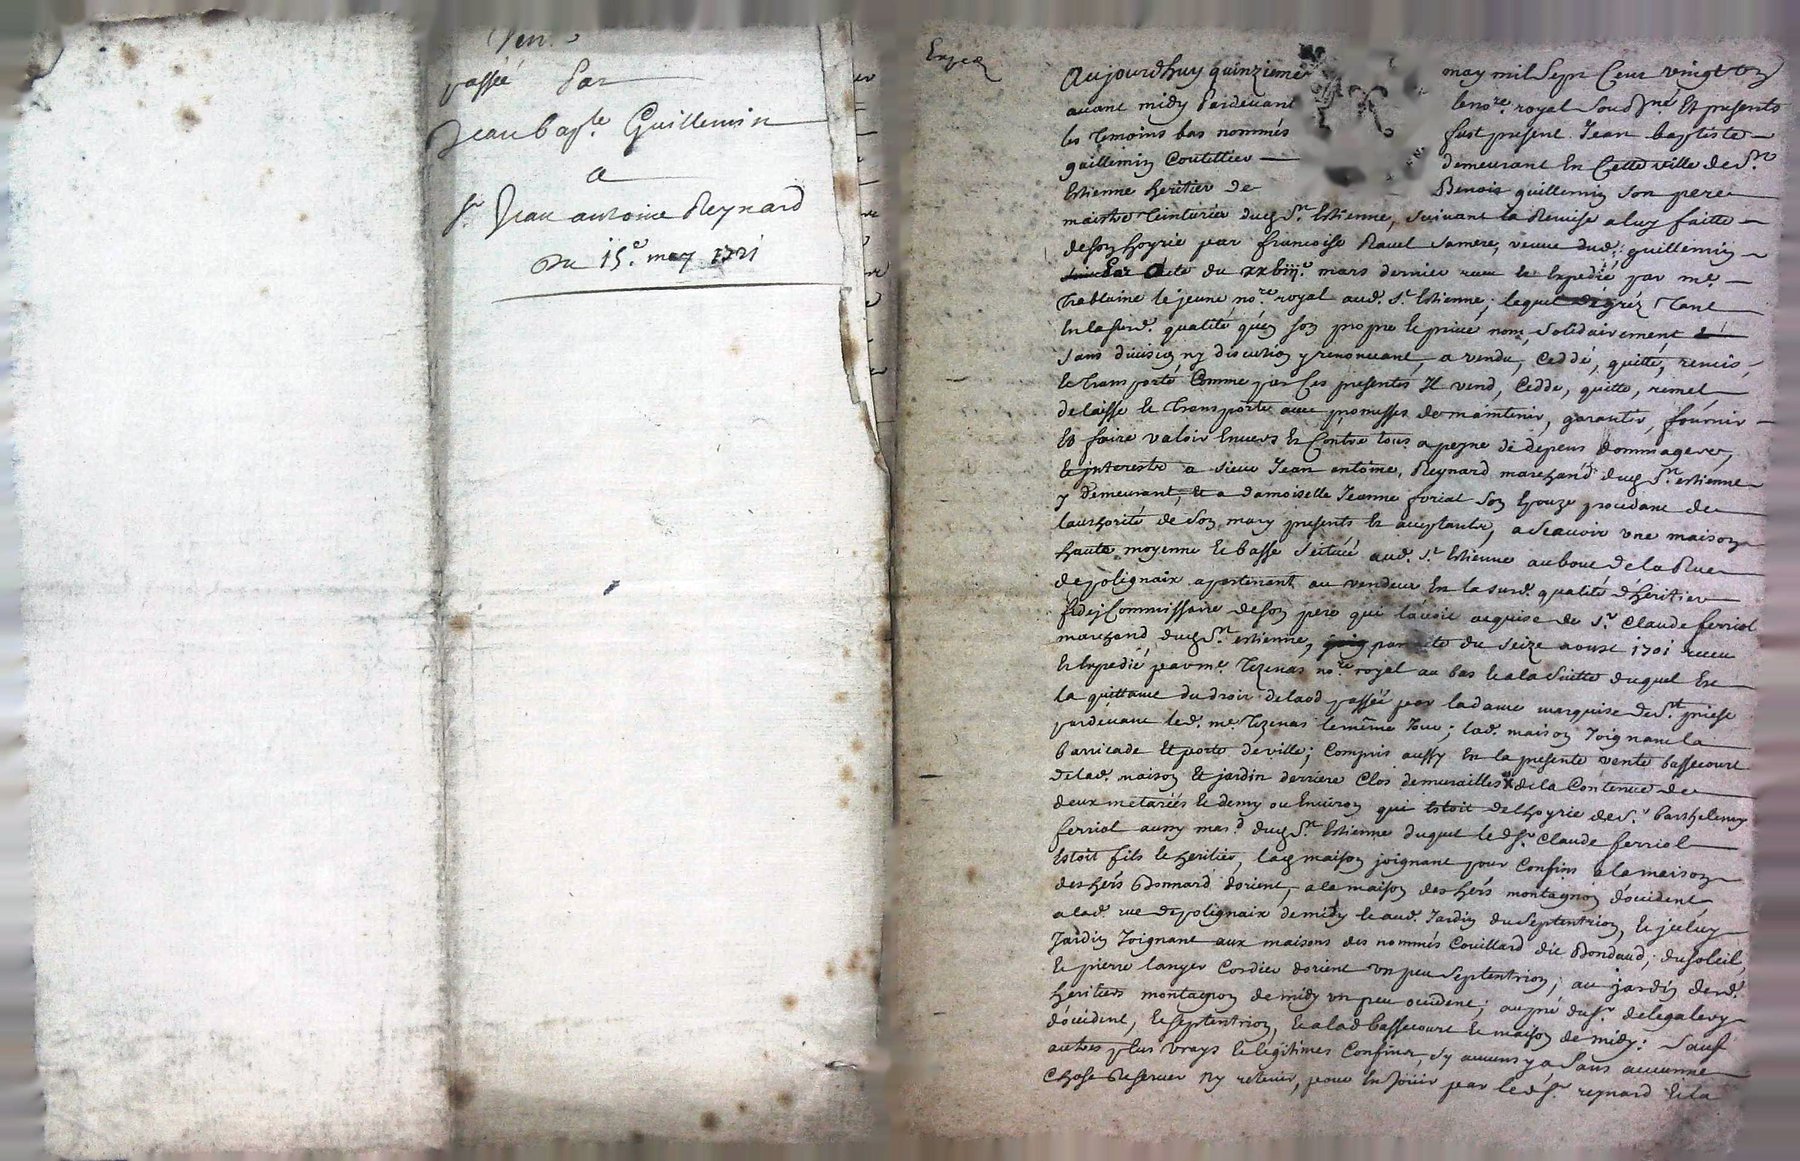 Ven.
passée Par
Jean bap.te Guillemin
a
S.r Jean antoine Reynard
Du 15.e may 1721
Exped
Aujourdhuy quinzieme may mil Sept Cent vingt un
avant midy Pardevant le no.re royal Sousné Et presents
les Temoins bas nommés fust present Jean baptiste
guillemin Coutellier demeurant En Cette ville de S.t
Estienne heritier de Benois guillemin Son pere
maistre Teinturier dud S.t Estienne, Suivant la Remise a luy faitte
de son hoyrie par francoise Ravel Samere, veuve dud. guillemin
Par Acte du xxbiij.e mars dernier receu et Expedié par m.e
Trablaine le jeune no.re royal aud. S.t Estienne; lequel de gréz Tant
En la Surd. qualité qu'en son propre et privé nom, Solidairement
Sans division ny discution y renoncant, a vendu, Ceddé, quitté, remis,
et Transporté Comme par Ces presentes Il vend, Cedde, quitte, remet,
delaisse et Transporte avec promesses de maintenir, garantir, fournir
Et faire valoir Envers Et Contre tous a peyne de depens dommages
et interests a sieur Jean antoine Reynard marchand dud S.t estienne
y demeurant, et a damoiselle Jeanne foriat Son Epouze procedant de
lauthorité de Son mary presents et acceptants, a Scavoir une maison
haute moyenne et basse Scituée aud. S.t Estienne au bout de la Rue
de polignaix apartenant au vendeur En la surd. qualité d'heritier
fideiCommissaire de son pere qui lavoit acquise de S.r Claude ferriol
marchand dud S.t estienne, par acte du Seize aoust 1701 receu
et Expedié par m.e Tezenas no.re royal au bas et a la Suitte duquel Est
la quittance du droit de laod passée par la dame marquise de S.t priest
pardevant led. m.e Tezenas le même Jour; lad. maison Joignant la
barricade Et porte de ville; Compris aussy En la presente vente bassecourt
de lad. maison Et jardin derriere Clos de murailles de la Contenue de
deux metarées et demy ou Environ qui Estoit de lhoyrie de S.r barthelemy
ferriol aussy mar.d dud S.t Estienne duquel le d S.r Claude ferriol
Estoit fils et heritier, lad maison joignant pour Confins a la maison
des hers Bonnard dorient, a la maison des hers montagnon d'occident,
a lad. rue de polignaix de midy et aud. Jardin du Septentrion, et iceluy
Jardin Joignant aux maisons des nommés Couillard dit Bondaud, du soleil,
et pierre langer Cordier dorient un peu Septentrion; au jardin desd.
heritiers montagnon de midy un peu occident; au pré du S.r delegalery
d'occident, et Septentrion, et a lad bassecourt et maison de midy: Sauf
autres plus vrays et legitimes Confins, Sy aucuns y a Sans aucunne
Chose Reserver ny retenir, pour En Jouir par le d S.r reynard et la